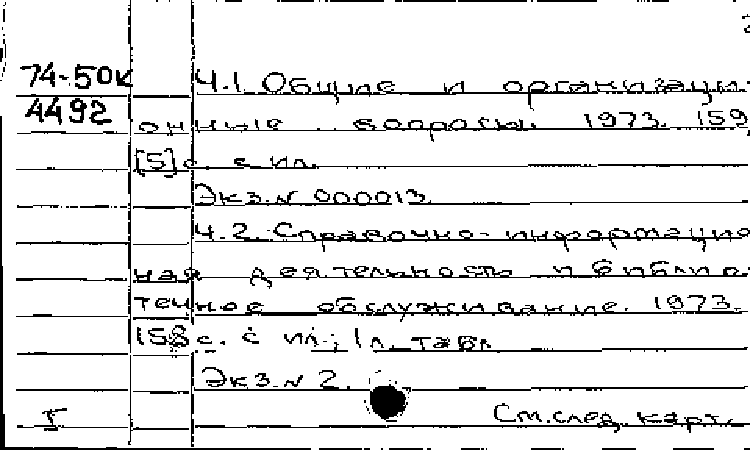 74-50к Ч.1 Общие и организаци-
4492 онные вопросы. 1973. 159,
[5] с. с ил.
Экз. N 000013
Ч.2 Справочно-информацион
ная деятельность и библио-
течное обслуживание. 1973.
158 с. с ил.; 1 л. табл.
Экз. N 2.
См. след. карт.